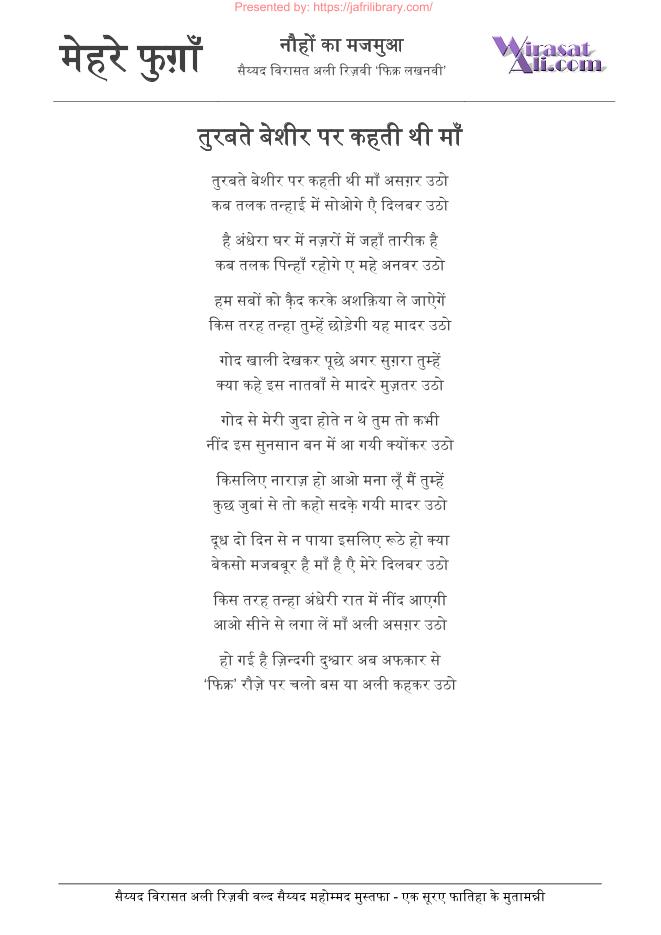 Presented by: https://jafrilibrary.com/
मेहरे फुग़ाँ
नौहों का मजमुआ
सैय्यद विरासत अली रिज़वी ‘फिक्र लखनवी’
Wirasat
Ali.com
तुरबते बेशीर पर कहती थी माँ
तुरबते बेशीर पर कहती थी माँ असग़र उठो
कब तलक तन्हाई में सोओगे एै दिलबर उठो
है अंधेरा घर में नज़रों में जहाँ तारीक है
कब तलक पिन्हाँ रहोगे ए महे अनवर उठो
हम सबों को कै़द करके अशक़िया ले जाऐगें
किस तरह तन्हा तुम्हें छोड़ेगी यह मादर उठो
गोद खाली देखकर पूछे अगर सुग़रा तुम्हें
क्या कहे इस नातवाँ से मादरे मुज़तर उठो
गोद से मेरी जुदा होते न थे तुम तो कभी
नींद इस सुनसान बन में आ गयी क्योंकर उठो
किसलिए नाराज़ हो आओ मना लूँ मैं तुम्हें
कुछ जुबां से तो कहो सदक़े गयी मादर उठो
दूध दो दिन से न पाया इसलिए रूठे हो क्या
बेकसो मजबबूर है माँ है एै मेरे दिलबर उठो
किस तरह तन्हा अंधेरी रात में नींद आएगी
आओ सीने से लगा लें माँ अली असग़र उठो
हो गई है ज़िन्दगी दुश्वार अब अफकार से
‘फिक्र’ रौज़े पर चलो बस या अली कहकर उठो
सैय्यद विरासत अली रिज़वी वल्द सैय्यद महोम्मद मुस्तफा - एक सूरए फातिहा के मुतामन्नी